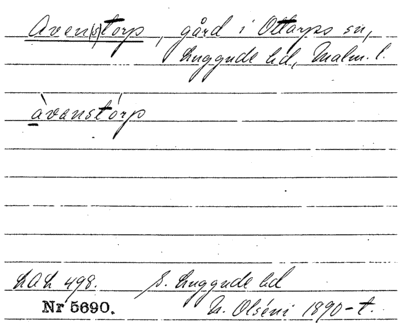 Aven(s)torp, gård i Ottarps sn,
Luggude hd, Malm. l.
àvanstórp
LAL 498. S. Luggude hd
Nr 5690. N. Olséni 1890-t.